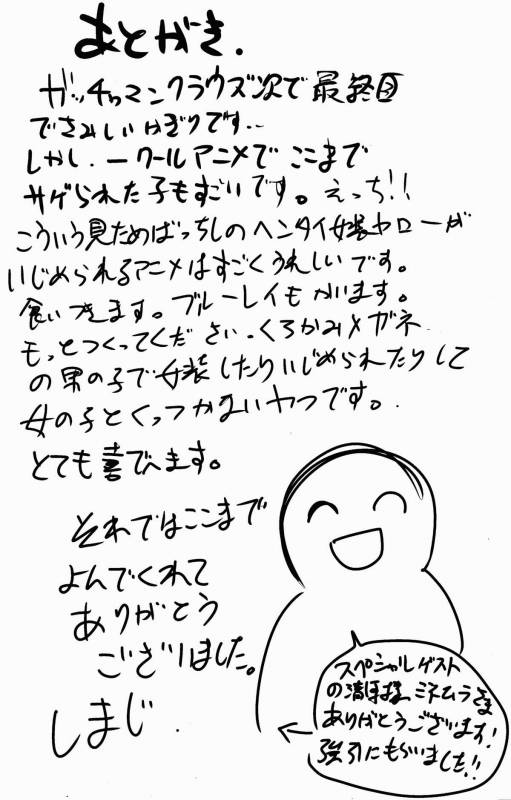 あとがき.
ガッチャマンクラウズ次で最終回
でさみしいかぎりです..
しかし.一クールアニメでここまで
サゲられた子もすごいです。えっち!!
こういう見ためばっちしのヘンタイ女装ヤローが
いじめられるアニメはすごくうれしいです。
食いつきます。ブルーレイもかいます。
もっとつくってください.くろかみメガネ
の男の子で女装したりいじめられたりして
女の子とくっつかないヤツです。
とても喜びます。
それではここまで
よんでくれて
ありがとう
ございました。
しまじ
スペシャルゲスト
の清保様、ミネムラさま
ありがとうございます!
強引にもらいました!!